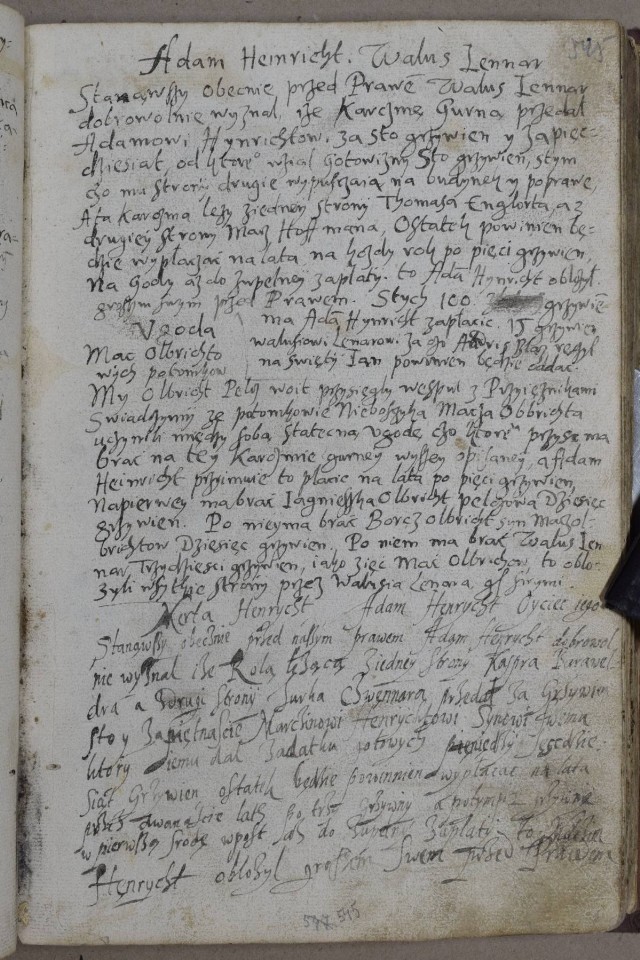 545
Adam Heinricht. Walus Lennar
Stanąwszy obecnie przed Prawē Walus Lennar
dobrowolnie wyznal, iże Karczmę Gurną przedal
Adamowi Hynrichtow. za sto grzywien y zapięc-
dziesiąt, od ktore° wział gotowizny Sto grzywien, stym
czo mu strony drugie wypuszczaią na budynek y poprawę,
A ta Karczma leży ziedney strony Thomasa Englerta, a z
drugiey strony Macz Hoffmana, Ostatek powinien bę-
dzie wyplaczać na lata, na kożdy rok po pięci grzywien,
na Gody aż do zupelney zaplaty. to Adā Hynricht oblożył
groszym swym przed Prawem. Stych 100. grzywiē
ma Adā Hynricht zaplacic. 15 grzywien
walusiowi Lenarow. za
na swięty Ian powinien będzie oddac.
Vgoda
Mac Olbrichto
wych potomkow
My Olbricht Pelcz woit przysięgly wespuł z Przysiężnikami
Swiadczymy że potomkowie Nieboszyka Macza Olbrichta
uczynili miedzy sobą statecną Vgodę, czo ktore przysz ma
brać na tey Karczmie gurney wyszey opisaney, a Adam
Heinricht przyimuie to placic na lata po pięci grzywien,
Napierwey ma brać Iagnieszka Olbricht pelczowa Dziesięc
grzywien. Po niey ma brać Borcz Olbricht syn Maczol-
brichtow Dziesięc grzywien. Po niem ma brać Walus Len
nar, Trzydziesci grzywien, iako zięc Mac Olbrichow, to oblo-
zyli wszytkie strony przez Walusia Lenara, g
Merta Henrycht Adam Henrycht Oyciec iego
Stanąwszy obecznie przed naszym prawem Adam Henrycht dobrowol-
nie wyznal iże Rolą leżącą ziedney strony Kaspra
dra a zdrugi strony Jurka przedal za Grzywien
sto y zapiętnascie Marcinowi Henrychtowi Synowi swemu
ktory iemu dal zadatku gotwych pieniedzy
siąt Grzywien ostatek bedzie powinnien wyplacac na lata
przez dwanascie lath po trzi grzywny a potym
w pierwszą srodę w post aż do zupelni zaplaty to
Henrycht oblożyl groszem Swem przed Prawem
545